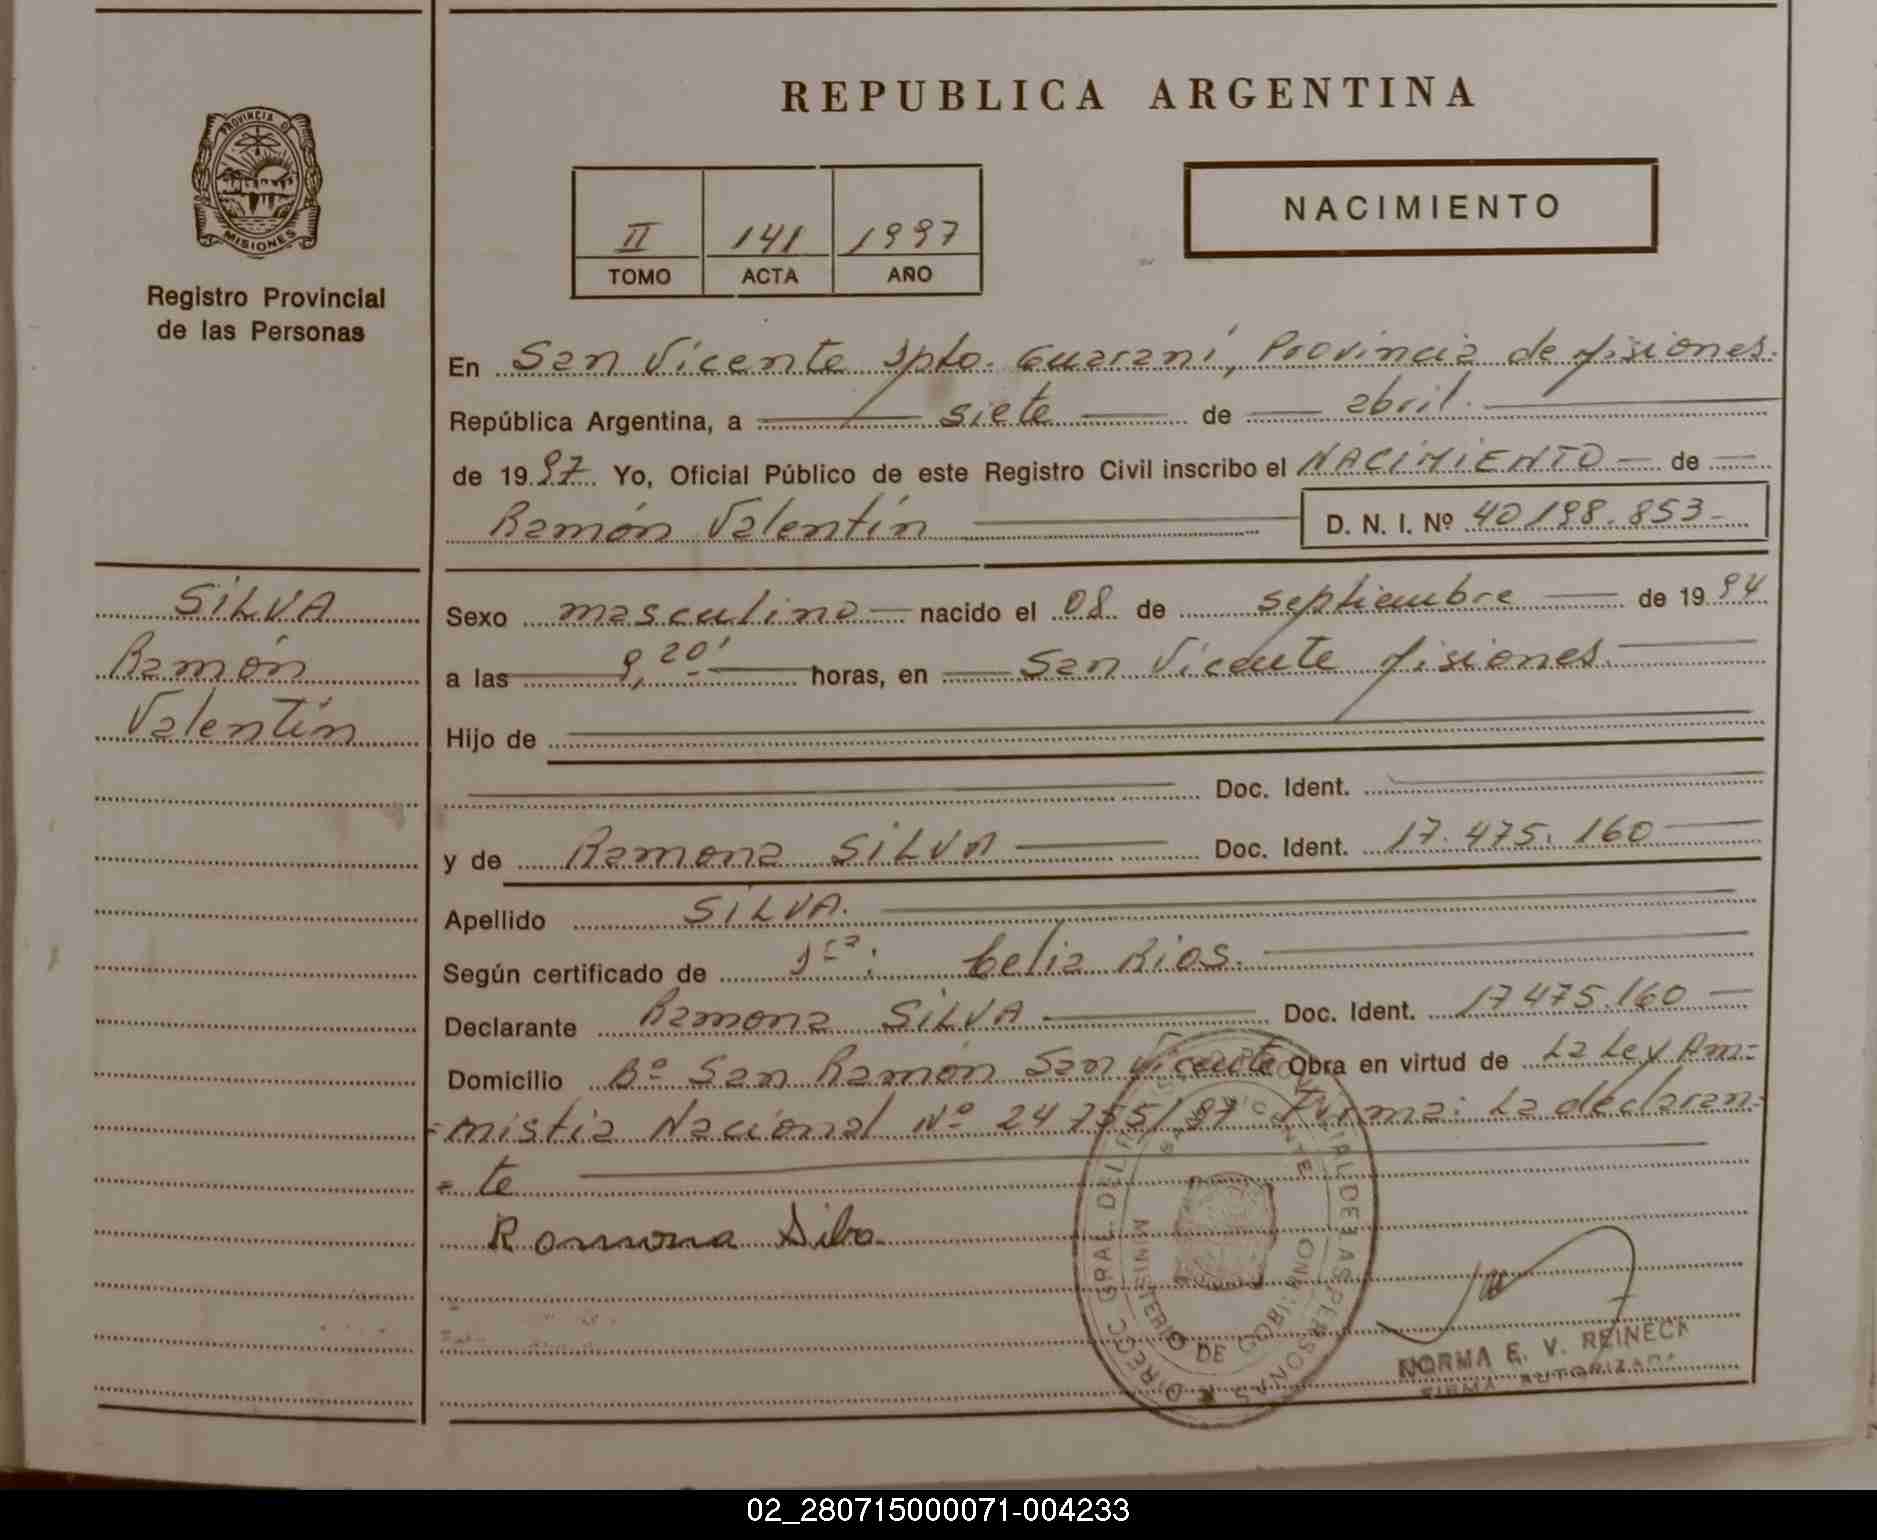 REPUBLICA ARGENTINA
PROVINCIA D
MISIONES
Registro Provincial
de las Personas
II 141 1997
TOMO ACTA AÑO
NACIMIENTO
En San Vicente Dpto. Guaraní, Provincia de Misiones.
República Argentina, a siete de abril.
de 1997 Yo, Oficial Público de este Registro Civil inscribo el NACIMIENTO de
Ramón Valentín D. N. I. Nº 40198.853-
SILVA
Ramón
Valentín
Sexo masculino nacido el 08 de septiembre de 1994
a las 9,20' horas, en San Vicente Misiones.
Hijo de
Doc. Ident.
y de Ramona SILVA Doc. Ident. 17.475.160
Apellido SILVA.
Según certificado de Celia Rios.
Declarante Ramona SILVA Doc. Ident. 17475.160
Domicilio Bº San Ramón San Vicente Obra en virtud de La Ley Am=
=mistia Nacional Nº 24755/97 Firma: La declaran=
=te
Ramona Silva
DIRECC GRAL DEL PROVINCIAL DE LAS PERSONAS
SAN VICENTE
MINISTERIO DE GOBIERNO
NORMA E. V. REINECK
FIRMA AUTORIZADA
02_280715000071-004233